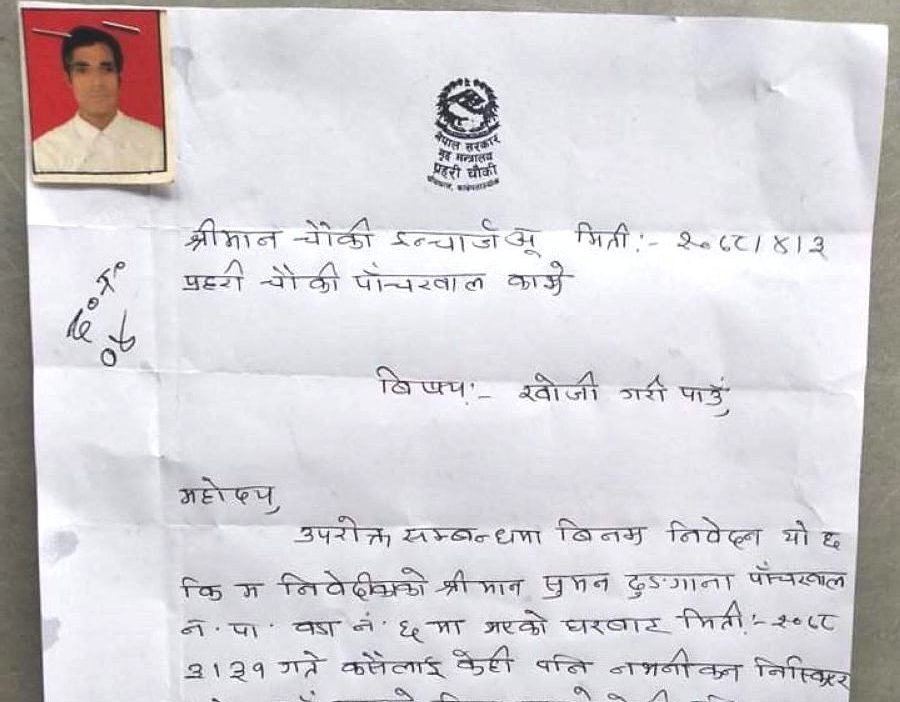 नेपाल सरकार
गृह मन्त्रालय
प्रहरी चौकी
श्रीमान चौकी इन्चार्ज ज्यू मिती:- २०८२।४।३
प्रहरी चौकी पाँचखाल काभ्रे
बिषय:- खोजी गरी पाउँ,
महोदय,
उपरोक्त सम्बन्धमा बिनम्र निवेदन यो छ
कि म निवेदीकाको श्रीमान सुमन ढुङगाना पाँचखाल
न.पा. वडा नं. ६ मा भएको घरबाट मिती:- २०८२
३।३१ गते कसैलाई केही पनि नभनीकन निस्किएर